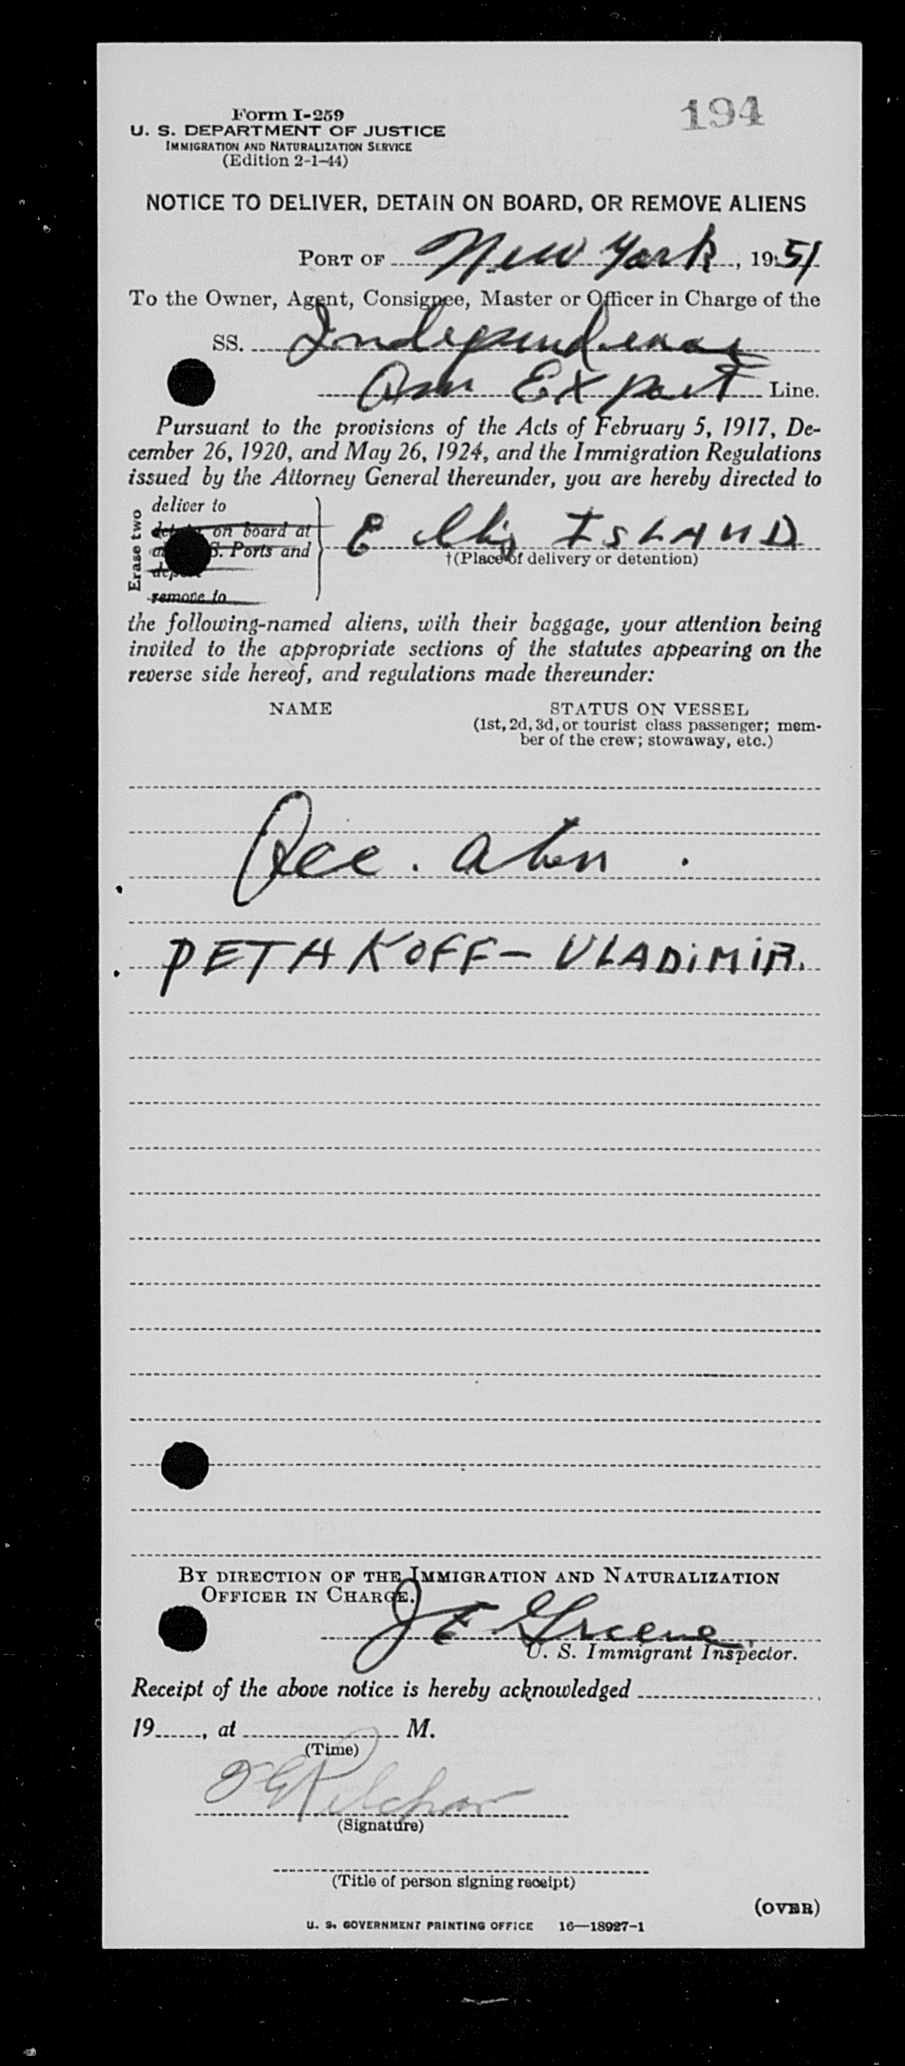 194
Form I-259
U. S. DEPARTMENT OF JUSTICE
IMMIGRATION AND NATURALIZATION SERVICE
(Edition 2-1-44)
NOTICE TO DELIVER, DETAIN ON BOARD, OR REMOVE ALIENS
PORT OF New York, 1951
To the Owner, Agent, Consignee, Master or Officer in Charge of the
SS. Independence
Am Export Line.
Pursuant to the provisions of the Acts of February 5, 1917, De-
cember 26, 1920, and May 26, 1924, and the Immigration Regulations
issued by the Attorney General thereunder, you are hereby directed to
Erase two
deliver to
on board at
S. Ports and
remove to
Ellis ISLAND
†(Place of delivery or detention)
the following-named aliens, with their baggage, your attention being
invited to the appropriate sections of the statutes appearing on the
reverse side hereof, and regulations made thereunder:
NAME
STATUS ON VESSEL
(1st, 2d, 3d, or tourist class passenger; mem-
ber of the crew; stowaway, etc.)
alien
PETHKOFF - VLADIMIR.
BY DIRECTION OF THE IMMIGRATION AND NATURALIZATION
OFFICER IN CHARGE.
J E Greene
U. S. Immigrant Inspector.
Receipt of the above notice is hereby acknowledged
19, at M.
(Time)
(Signature)
(Title of person signing receipt)
(OVER)
U. S. GOVERNMENT PRINTING OFFICE 16—18927-1